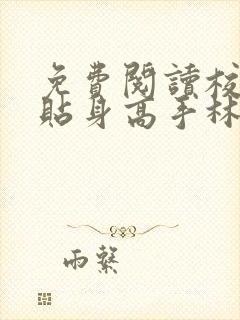 免費閱讀校
貼身高手林
雨繫